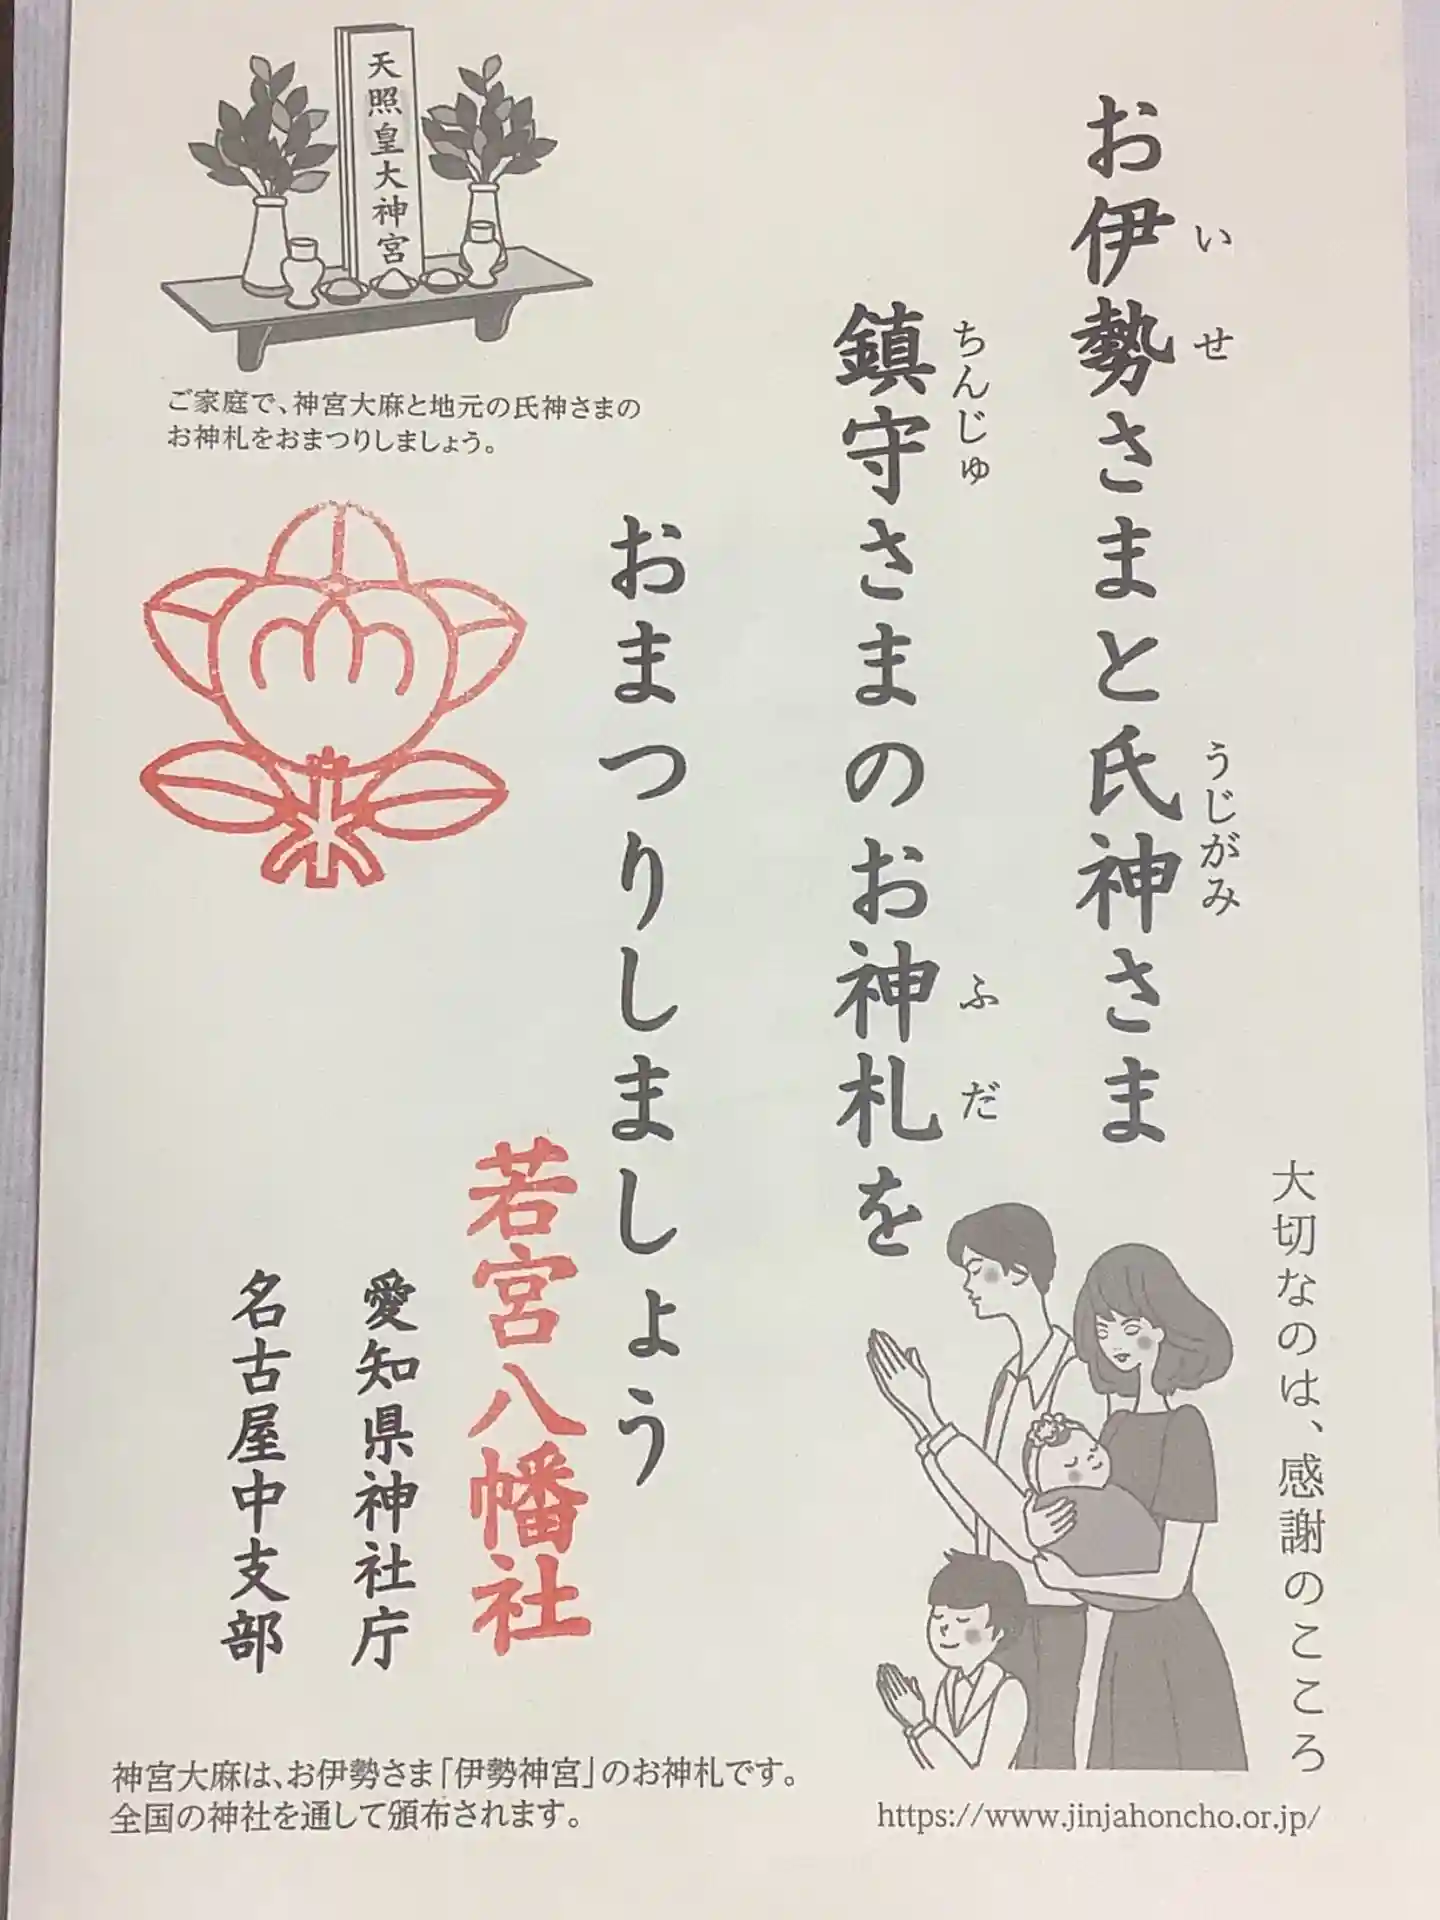 お伊勢さまと氏神さま
いせ
うじがみ
鎮守さまのお神札を
ちんじゅ
ふだ
おまつりしましょう
天照皇大神宮
ご家庭で、神宮大麻と地元の氏神さまの
お神札をおまつりしましょう。
大切なのは、感謝のこころ
若宮八幡社
愛知県神社庁
名古屋中支部
神宮大麻は、お伊勢さま「伊勢神宮」のお神札です。
全国の神社を通して頒布されます。
https://www.jinjahoncho.or.jp/